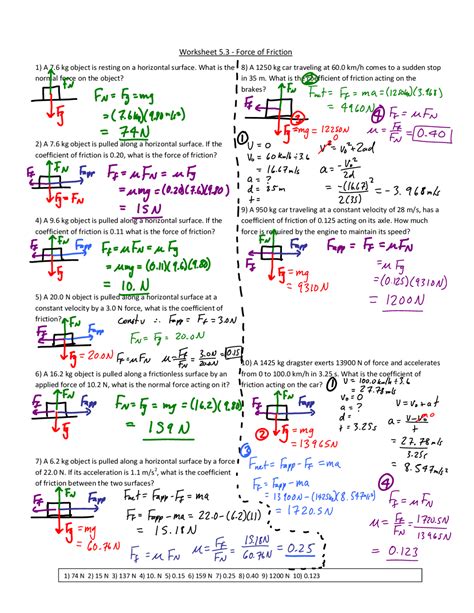 Worksheet 5.3 - Force of Friction
1) A 7.6 kg object is resting on a horizontal surface. What is the
normal force on the object?
FN = Fg = mg
= (7.6kg)(9.80 m/s²)
= 74N
FN
Fg
2) A 7.6 kg object is pulled along a horizontal surface. If the
coefficient of friction is 0.20, what is the force of friction?
Ff = μFN = μFg
= μmg = (0.20)(7.6)(9.80)
= 15N
FN
Ff
Fapp
Fg = FN
4) A 9.6 kg object is pulled along a horizontal surface. If the
coefficient of friction is 0.11 what is the force of friction?
Ff = μFN = μFg
= μmg = (0.11)(9.6)(9.80)
= 10. N
FN
Ff
Fapp
Fg
5) A 20.0 N object is pulled along a horizontal surface at a
constant velocity by a 3.0 N force, what is the coefficient of
friction?
Const v ∴ Fapp = Ff = 3.0N
FN
Ff
Fg = 20.0N
Ff = μFN
μ = Ff/FN = 3.0N/20.0N = 0.15
6) A 16.2 kg object is pulled along a frictionless surface by an
applied force of 10.2 N, what is the normal force acting on it?
FN
Fapp
Fg
FN = Fg = mg = (16.2)(9.80)
= 159 N
7) A 6.2 kg object is pulled along a horizontal surface by a force
of 22.0 N. If its acceleration is 1.1 m/s², what is the coefficient
of friction between the two surfaces?
Fnet = Fapp - Ff = ma
Ff = Fapp - ma = 22.0 - (6.2)(1.1)
= 15.18N
FN
Ff
Fapp
Fg = mg
= 60.76N
Ff = μFN
μ = Ff/FN = 15.18N/60.76N = 0.25
8) A 1250 kg car traveling at 60.0 km/h comes to a sudden stop
in 35 m. What is the coefficient of friction acting on the
brakes?
③ Fnet = Ff = ma = (1250)(3.968)
= 4960N
FN
Ff
②
Fg = mg = 12250N
④ Ff = μFN
μ = Ff/FN = 0.40
①
V = 0
V₀ = 60 km/h ÷ 3.6
= 16.67m/s
a = ?
d = 35m
t =
V² = V₀² + 2ad
a = -V₀²/2d
= -(16.67)²/2(35) = -3.968m/s
9) A 950 kg car traveling at a constant velocity of 28 m/s, has a
coefficient of friction of 0.125 acting on its axle. How much
force is required by the engine to maintain its speed?
FN
Ff
Fapp
Fg = mg
= 9310N
Fapp = Ff = μFN
= μFg
= (0.125)(9310N)
= 1200N
10) A 1425 kg dragster exerts 13900 N of force and accelerates
from 0 to 100.0 km/h in 3.25 s. What is the coefficient of
friction acting on the car?
① V = 100.0 km/h ÷ 3.6
= 27.78m/s
V₀ = 0
a = ?
d =
t = 3.25s
V = V₀ + at
a = V-V₀/t
= 27.78m/s/3.25s
= 8.547m/s²
FN
Ff
Fapp
②
Fg = mg
= 13965N
③
Fnet = Fapp - Ff = ma
Ff = Fapp - ma
= 1720.5N
④
Ff = μFN
μ = Ff/FN = 1720.5N/13965N
= 0.123
1) 74 N 2) 15 N 3) 137 N 4) 10. N 5) 0.15 6) 159 N 7) 0.25 8) 0.40 9) 1200 N 10) 0.123